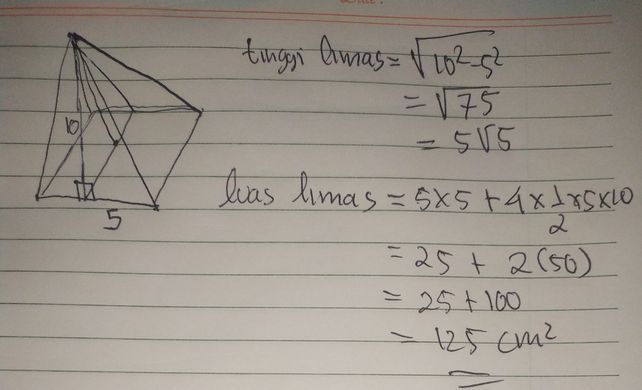 tinggi limas = √10²-5²
= √75
= 5√5
10
5
luas limas = 5×5 + 4×1/2×5×10
= 25 + 2(50)
= 25+100
= 125 cm²